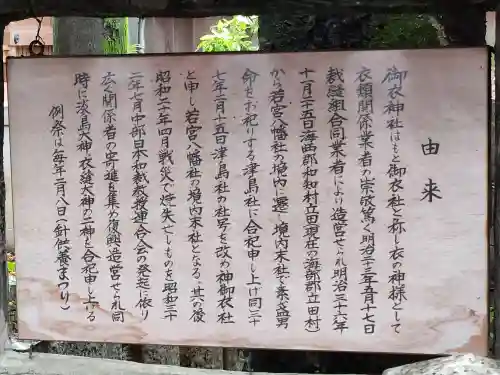 由来
御衣神社はもと御衣社と称し衣の神様として
衣類関係業者の崇敬篤く明治三十三年五月十七日
裁縫組合同業者により造営せられ明治三十六年
十一月二十五日海西郡和村立田(現在の海部郡立田村)
から若宮八幡社の境内に遷し境内末社で素盞男
命をお祀りする津島社に合祀申し上げ同三十
七年二月十五日津島社の社号を改め神御衣社
と申し若宮八幡社の境内末社となる 其の後
昭和二十年四月戦災で焼失したものを昭和三十
二年七月中部日本和裁教授連合会の発起に依り
広く関係者の寄進を集め復興造営せられ同
時に淡島神衣縫大神の二神を合祀申し上げる
例祭は毎年二月八日(針供養まつり)